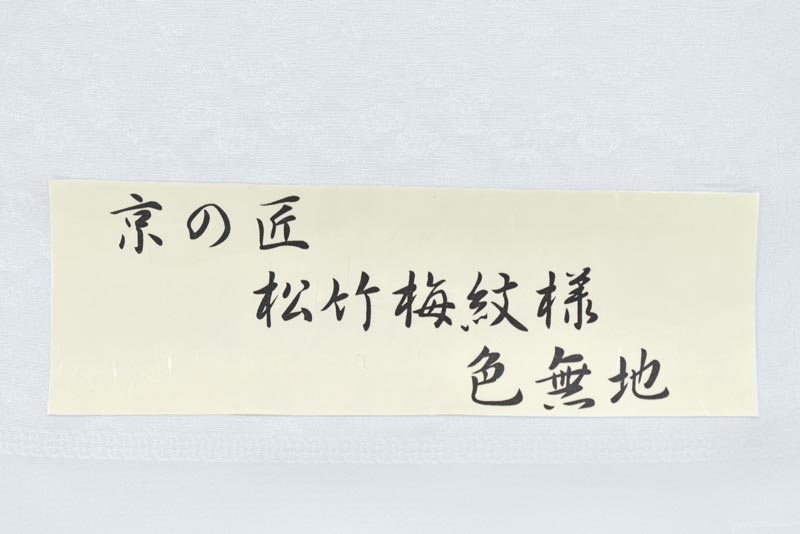 京の匠
松竹梅紋様
色無地